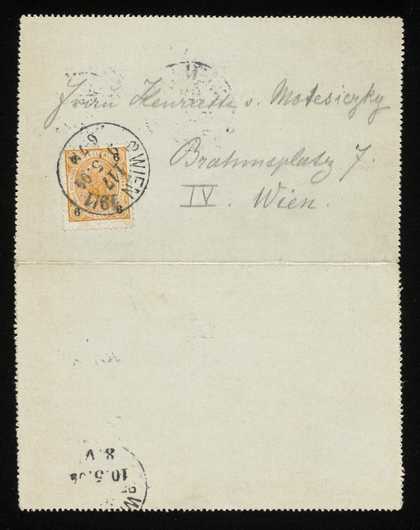 Frau Henriette v. Motesiczky
Brahmsplatz 7.
IV. Wien.
WIEN
19/1
10.5.
8.V
W